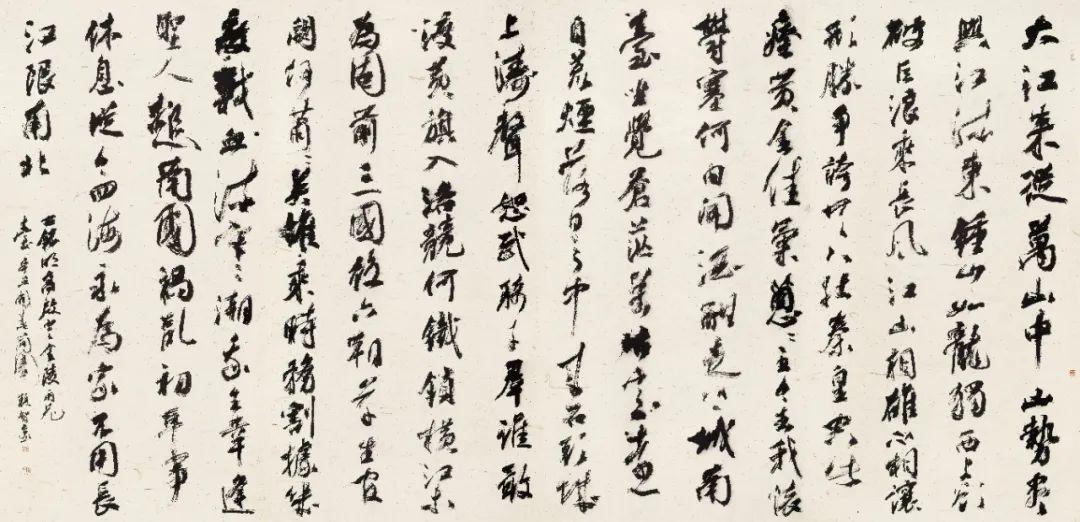 大江來從萬山中山勢盡
與江流東鍾山如龍獨西上欲
破巨浪乘長風江山相雄不相讓
形勝爭誇天下壯秦皇空此
瘞黃金佳氣蔥〻至今王我懷
鬱塞何由開酒酣走上城南
臺坐覺蒼茫萬古意遠
自荒煙落日之中來石頭城
上濤聲怒武騎千羣誰敢
渡黃旗入洛競何鐵鎖橫江未
為固前三國後六朝草生宮
闕何蕭〻英雄乘時務割據幾
度戰血流寒〻潮我生幸逢
聖人起南國禍亂初平事
休息從今四海永為家不用長
江限南北
明高啟登金陵雨花
臺